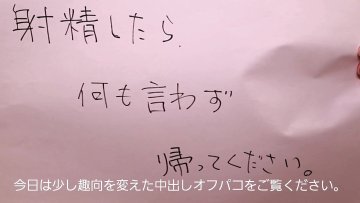 射精したら
何も言わず
帰ってください。
今日は少し趣向を変えた中出しオフパコをご覧ください。